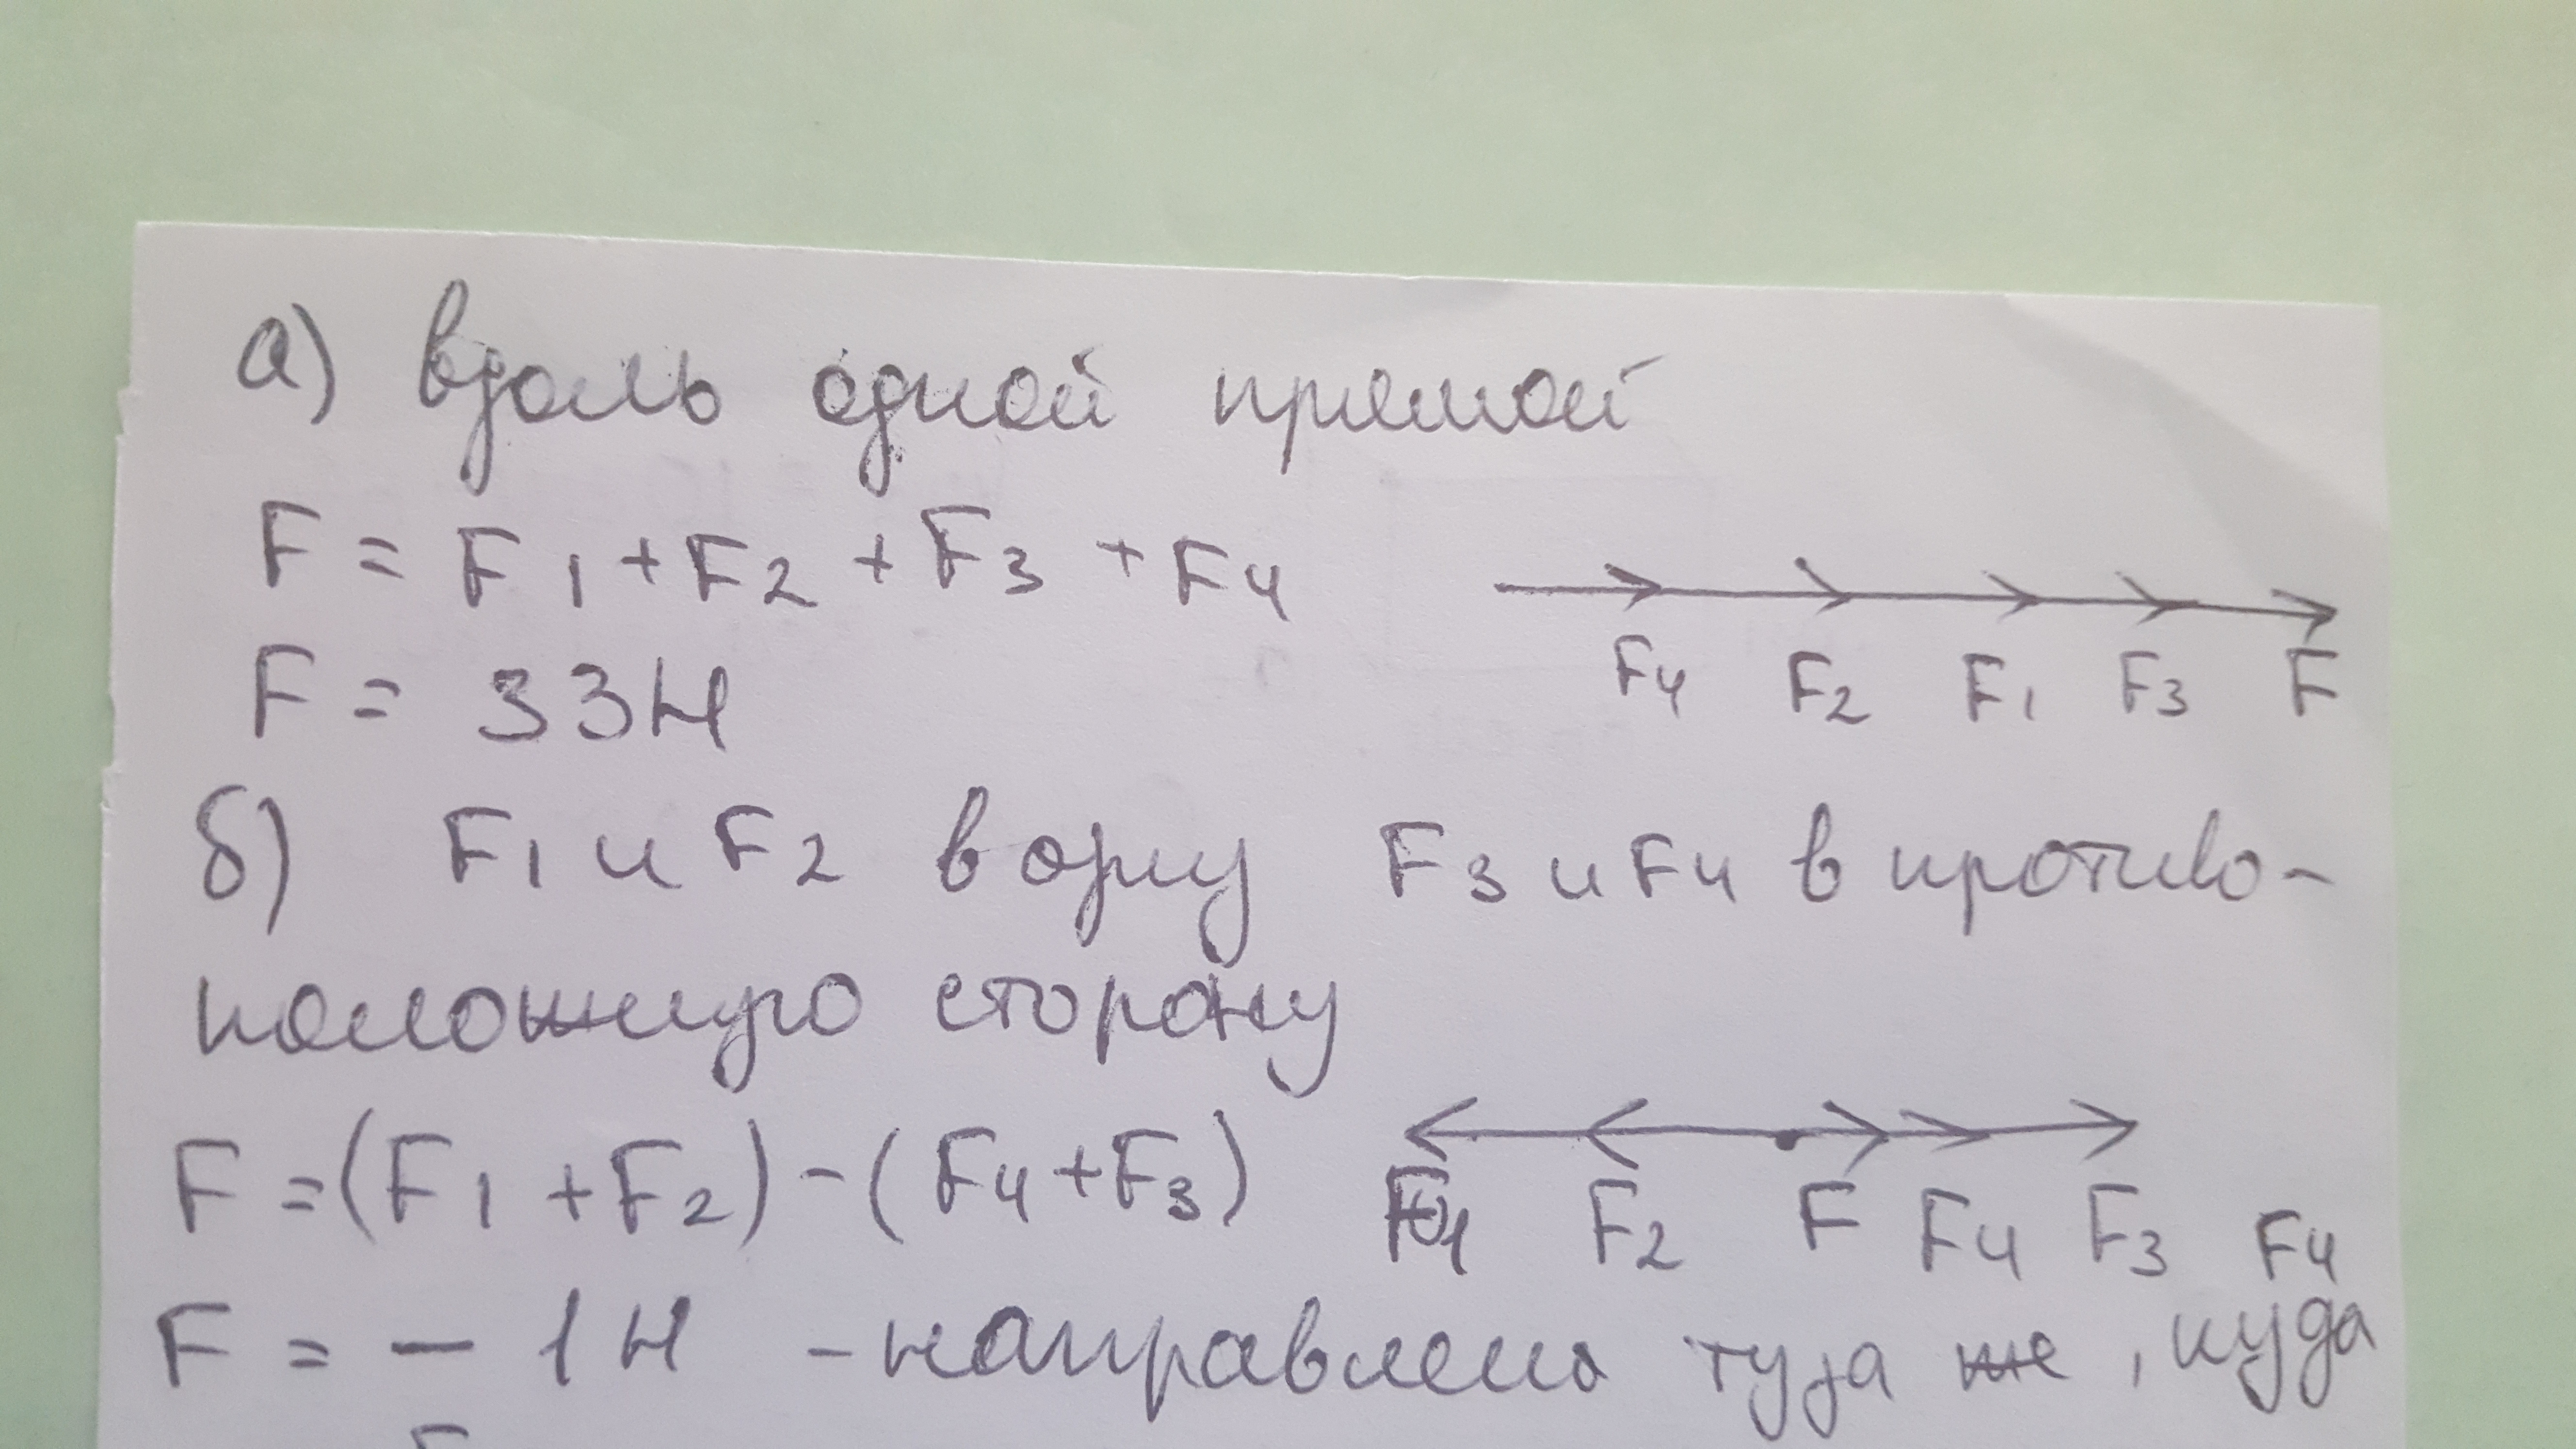 а) вдоль одной прямой
F = F1 + F2 + F3 + F4
F4 F2 F1 F3 F
F = 33Н
б) F1 и F2 в одну F3 и F4 в противо-
положную сторону
F = (F1 + F2) - (F4 + F3)
F1 F2 F F4 F3 F4
F = - 1Н - направлена туда же, куда